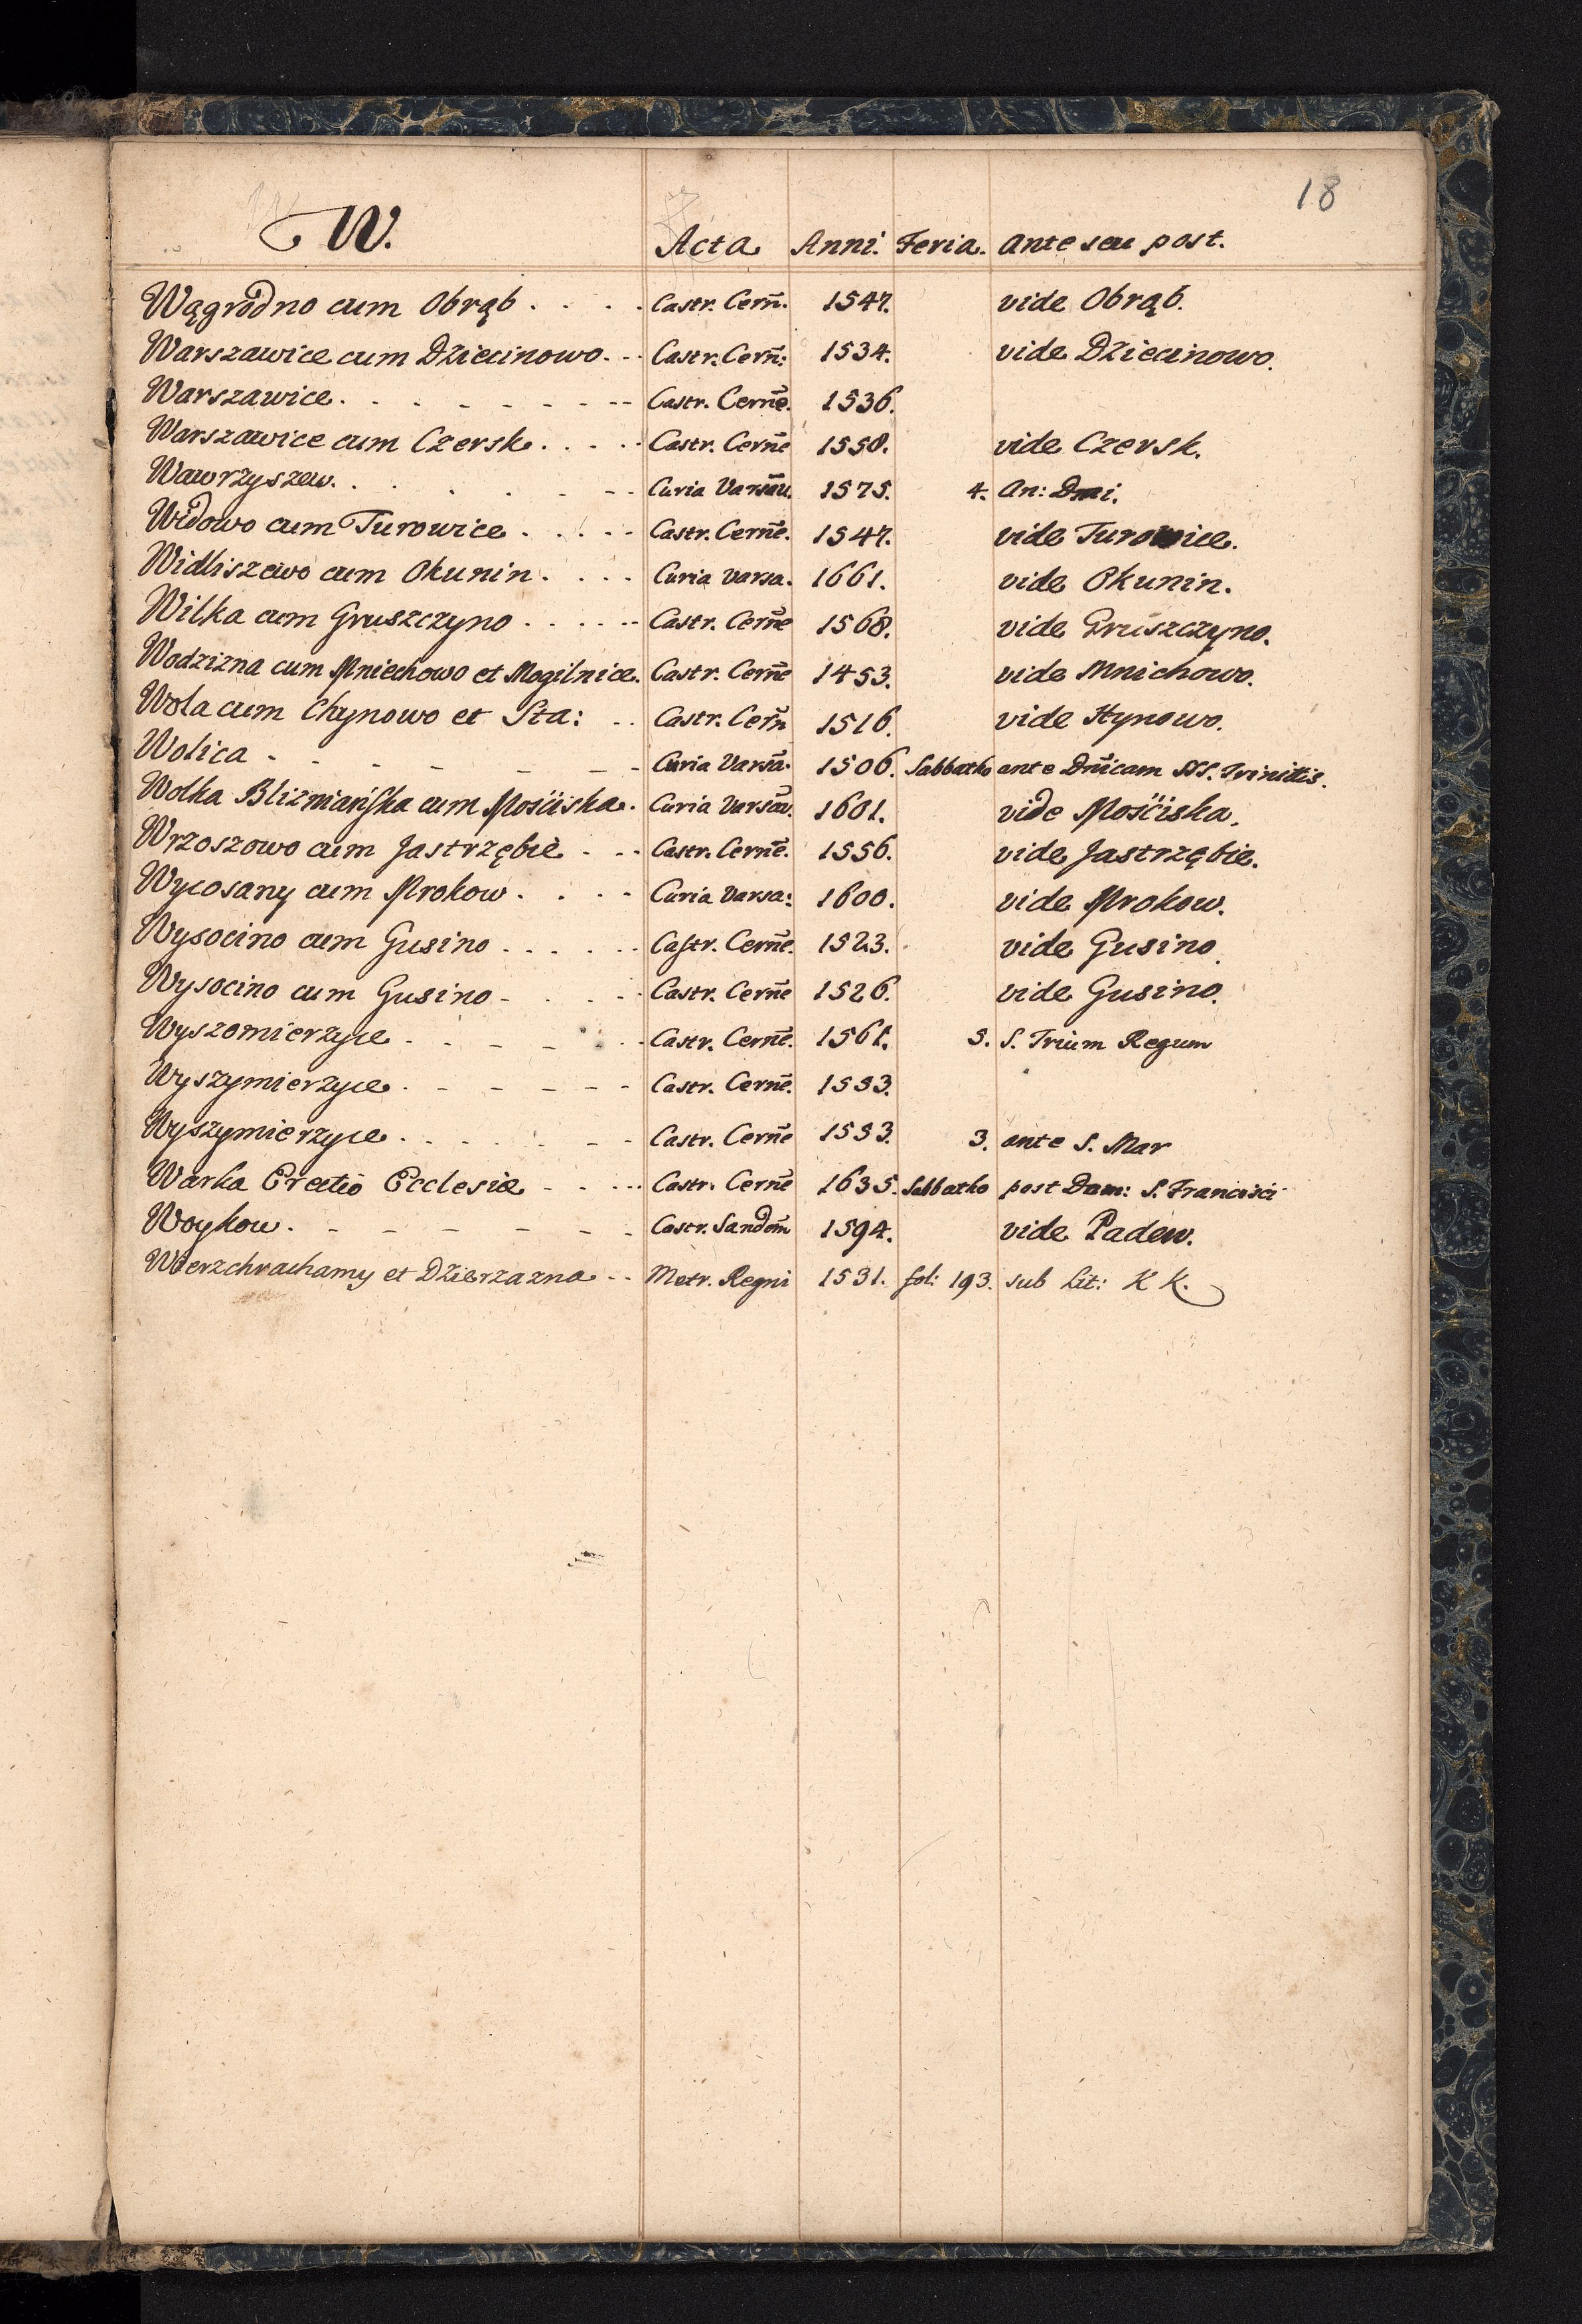 18
W. Acta Anni. Feria. Ante seu post.
Wągrodno cum Obrąb . . . . Castr. Cern̄. 1547. vide Obrąb.
Warszawice cum Dziecinowo. - - Castr. Cern̄: 1534. vide Dziecinowo.
Warszawice. . . - - - - - - Castr. Cern̄e. 1536.
Warszawice cum Czersk. . . - - Castr. Cern̄e 1550. vide Czersk.
Wawrzyszew. . . . . - - - Curia Varsāu. 1575. 4. An: Dni.
Widowo cum Turowice . . . - - Castr. Cern̄e. 1547. vide Turowice.
Widliszewo cum Okunin. . . . Curia Varsa. 1661. vide Okunin.
Wilka cum Gruszczyno . . . . - - Castr. Cern̄e 1568. vide Gruszczyno.
Wodzizna cum Mniechowo et Mogilnice. Castr. Cern̄e 1453. vide Mnichowo.
Wola cum Chynowo et Sta: . . Castr. Cern̄ 1516. vide Hynowo.
Wolica - - - - - - - Curia Varsā. 1506. Sabbatho ante Dn̄icam SSS. Trinit̄is.
Wolka Blizniańska cum Mosciska. Curia Varsāv. 1601. vide Mosciska.
Wrzoszowo cum Jastrzębie . - - Castr. Cern̄e. 1556. vide Jastrzębie.
Wycosany cum Mrokow. . . - Curia Varsa: 1600. vide Mrokow.
Wysocino cum Gusino . . . . - - Castr. Cern̄e. 1523. vide Gusino.
Wysocino cum Gusino - . . - - Castr. Cern̄e 1526. vide Gusino.
Wyszomierzyce . . - - - - Castr. Cern̄e. 1561. 5. S. Trium Regum
Wyszymierzyce . - - - - - Castr. Cern̄e. 1533.
Wyszymierzyce . . . . . - - Castr. Cern̄e 1533. 3. ante S. Mar
Warka Erectio Ecclesiæ - - - - Castr. Cern̄e 1635. Sabbatho post Dom: S. Francisci
Woykow. - - - - - - Castr. Sandom̄ 1594. vide Padew.
Wierzchrachamy et Dzierzazna - - Metr. Regni 1531. fol: 193. sub Lit: K K.